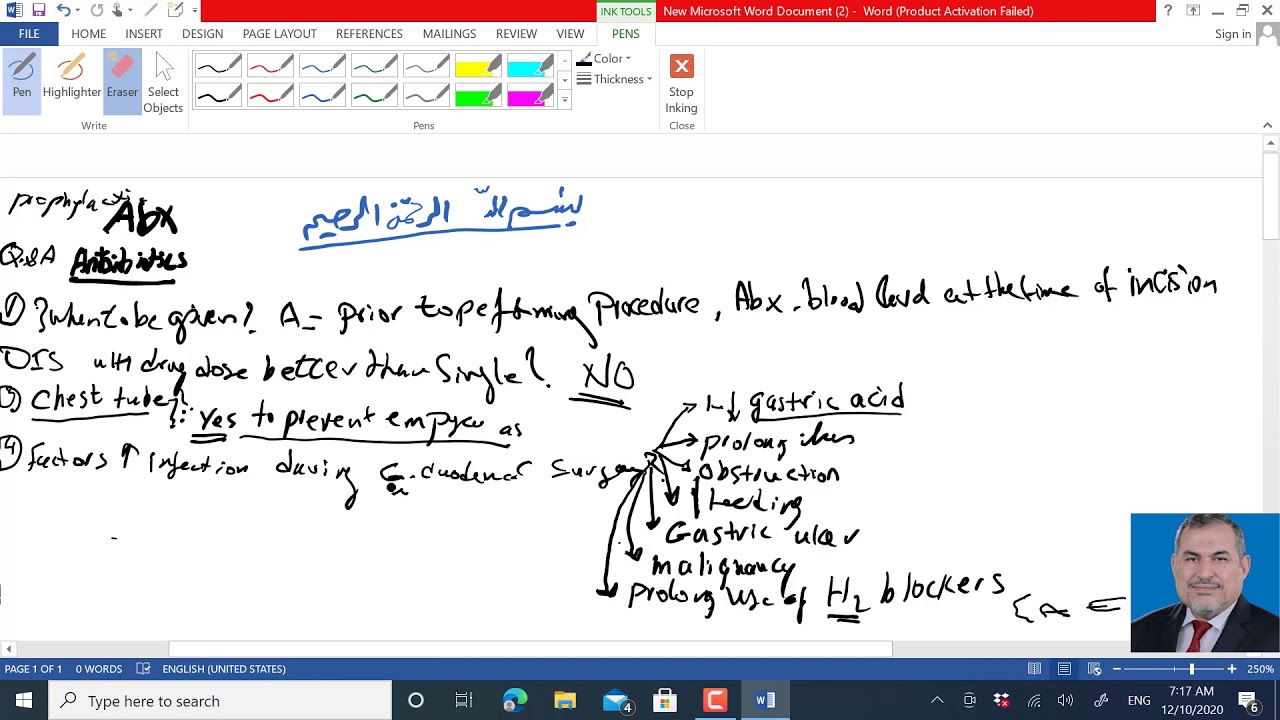 INK TOOLS
New Microsoft Word Document (2) - Word (Product Activation Failed)
FILE HOME INSERT DESIGN PAGE LAYOUT REFERENCES MAILINGS REVIEW VIEW PENS Sign in
Pen Highlighter Eraser Select Objects
Color
Thickness
Stop Inking
Write Pens Close
بسم الله الرحمن الرحيم
Abx
Q&A Antibiotics
① ? when to be given? A = prior to performing Procedure, Abx. blood level at the time of incision
② IS drug dose better than single? NO
③ Chest tube? Yes to prevent empyema as
④ factors ↑ infection during G. duodenal surgery
↓ gastric acid
prolong ileus
obstruction
bleeding
Gastric ulcer
malignancy
prolong use of H2 blockers
PAGE 1 OF 1 0 WORDS ENGLISH (UNITED STATES) 250%
Type here to search
4
ENG
7:17 AM
12/10/2020
6